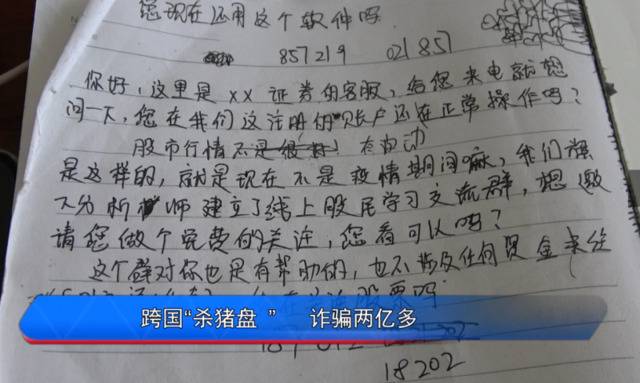 您现在还用这个软件吗
857219 021857
你好,这里是xx证券的客服,给您来电就想
问一下,您在我们这注册的账户还在正常操作吗?
股市行情不是很好! 有波动
是这样的,就是现在不是疫情期间嘛,我们强
大分析师建立了线上股民学习交流群,想邀
请您做个免费的关注,您看可以吗?
这个群对你也是有帮助的,也不涉及任何资金来往
股票吗
跨国“杀猪盘 ” 诈骗两亿多
18202